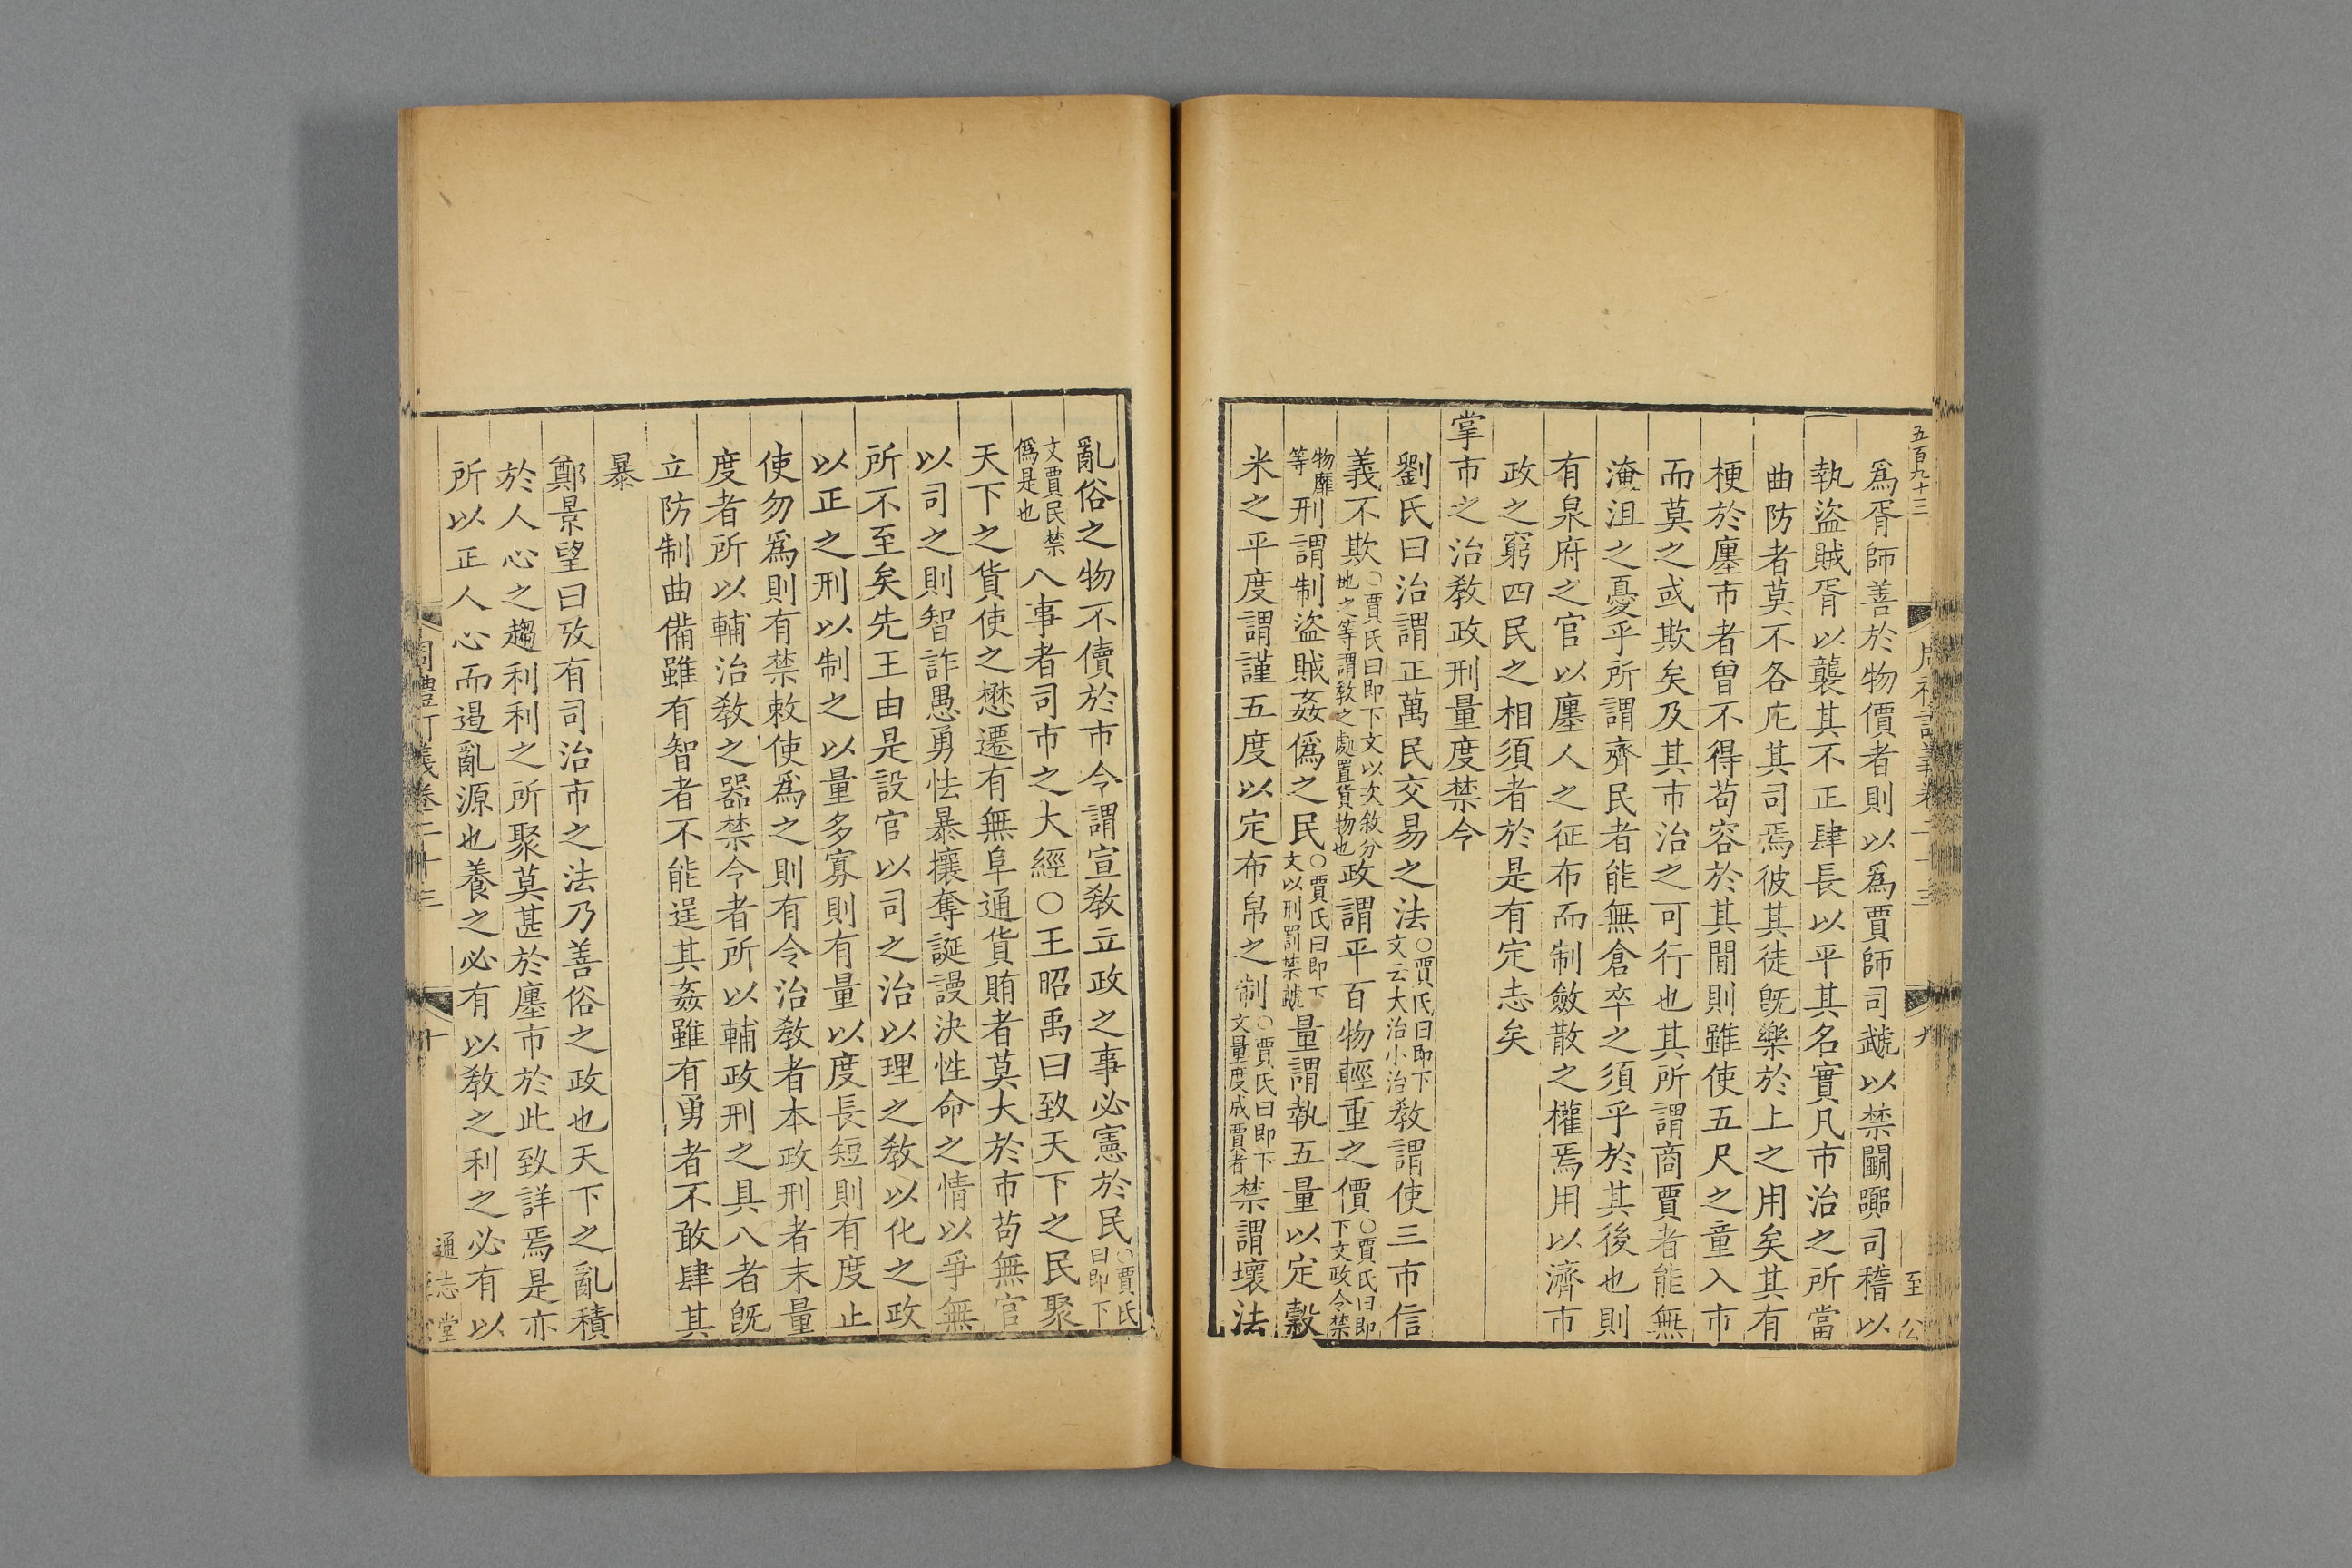 五百九十三
爲胥師善於物價者則以爲賈師司虣以禁鬭嚻司稽以
執盜賊胥以襲其不正肆長以平其名實凡市治之所當
曲防者莫不各庀其司焉彼其徒旣樂於上之用矣其有
梗於廛市者曽不得苟容於其閒則雖使五尺之童入市
而莫之或欺矣及其市治之可行也其所謂商賈者能無
淹沮之憂乎所謂齊民者能無倉卒之須乎於其後也則
有泉府之官以廛人之征布而制斂散之權焉用以濟市
政之窮四民之相須者於是有定志矣
掌市之治敎政刑量度禁令
劉氏曰治謂正萬民交易之法○賈氏曰即下文云大治小治敎謂使三市信
義不欺○賈氏曰即下文以次敘分地之等謂敎之處置貨物也政謂平百物輕重之價○賈氏曰即下文政令禁
物靡等刑謂制盜賊姦僞之民○賈氏曰即下文以刑罰禁虣量謂執五量以定穀
米之平度謂謹五度以定布帛之制○賈氏曰即下文量度成賈者禁謂壞法
九
至 公
亂俗之物不儥於市令謂宣敎立政之事必憲於民○賈氏曰即下
文賈民禁僞是也八事者司市之大經○王昭禹曰致天下之民聚
天下之貨使之懋遷有無阜通貨賄者莫大於市苟無官
以司之則智詐愚勇怯暴攘奪誕謾決性命之情以爭無
所不至矣先王由是設官以司之治以理之敎以化之政
以正之刑以制之以量多寡則有量以度長短則有度止
使勿爲則有禁敕使爲之則有令治敎者本政刑者末量
度者所以輔治敎之器禁令者所以輔政刑之具八者旣
立防制曲備雖有智者不能逞其姦雖有勇者不敢肆其
暴
鄭景望曰攷有司治市之法乃善俗之政也天下之亂積
於人心之趨利利之所聚莫甚於廛市於此致詳焉是亦
所以正人心而遏亂源也養之必有以敎之利之必有以
周禮訂義卷二十三
十
通志堂